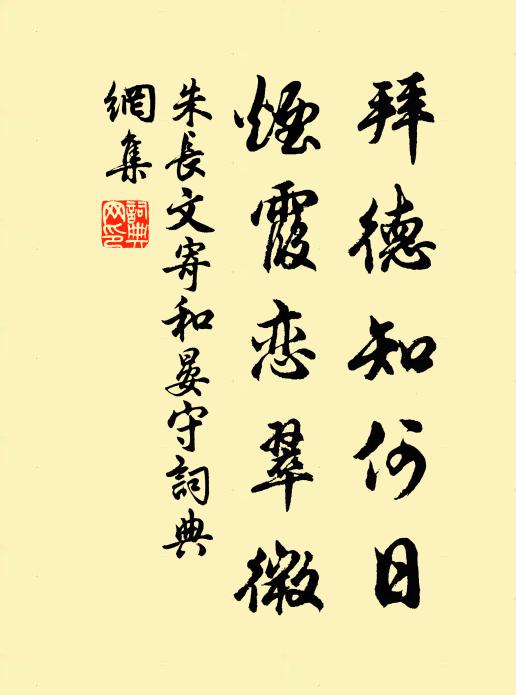 拜德知何日
煙霞恋翠微
朱長文寄和晏守詞典
網集
詞典
网印